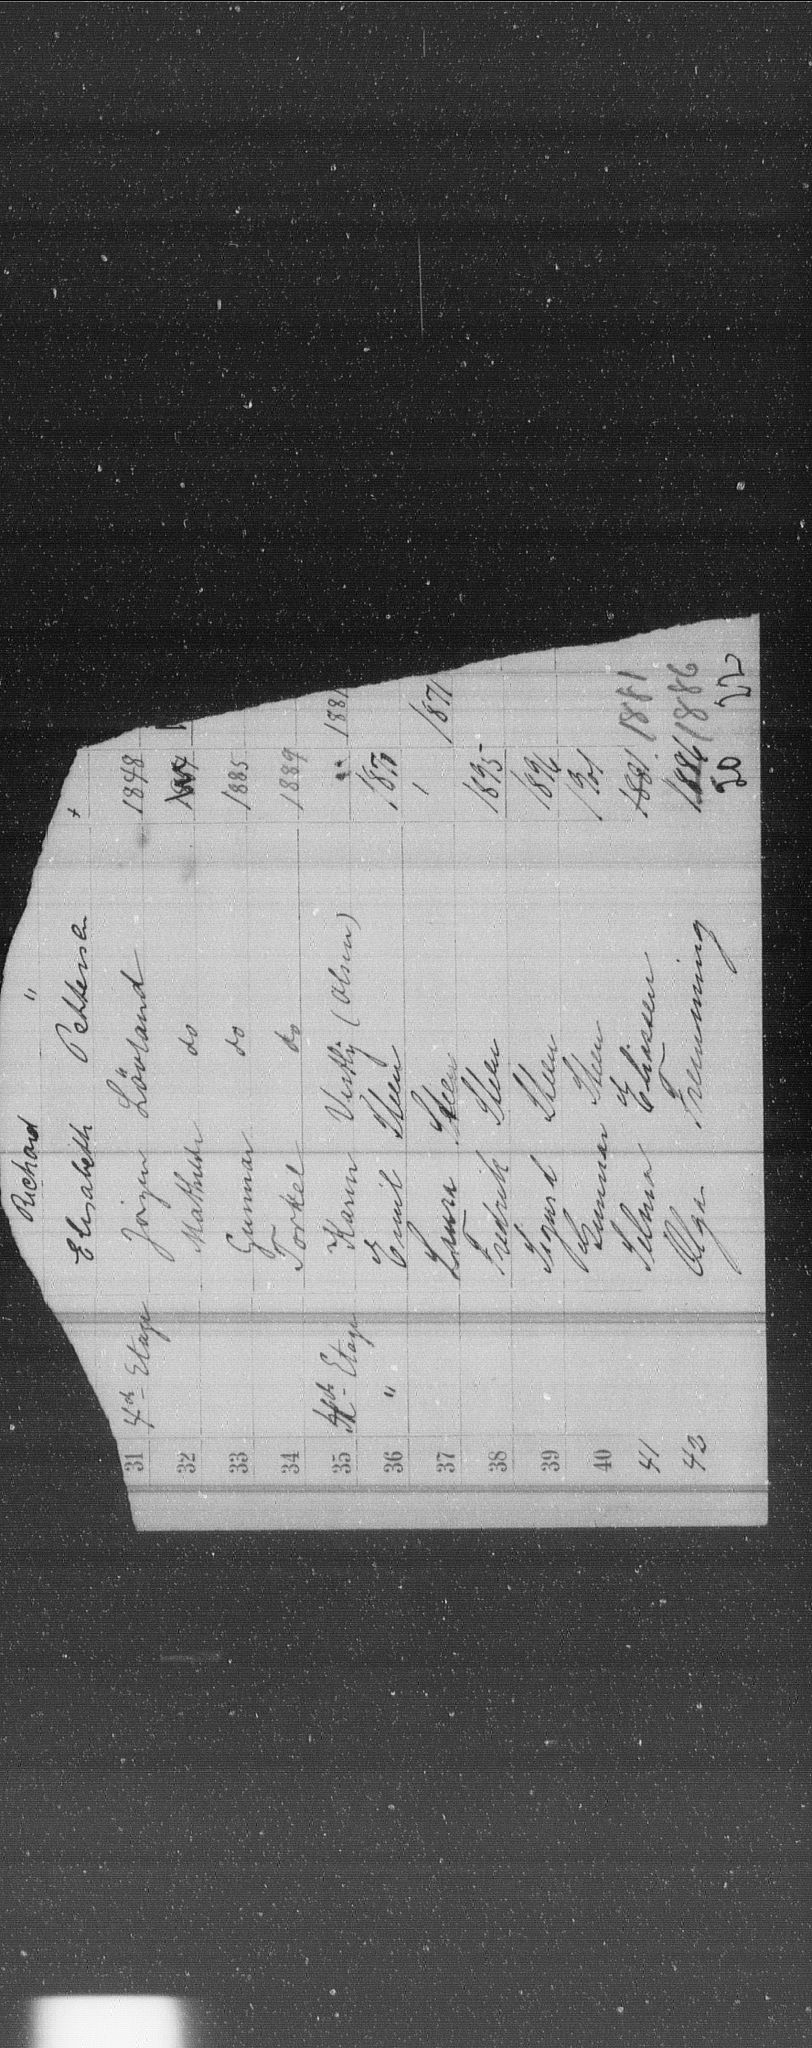 Richard "
Elisabeth Pettersen +
31 4de Etage Jörgen Lövland 1848
32 Mathilde do
33 Gunnar do 1885
34 Torkel do 1889
35 4de Etage Karen Vestly (Olsen) " 1881
36 " Emil Steen 1870
37 Laura Steen 1 1871
38 Fredrik Steen 1895
39 Sigurd Steen 1896
40 Gunnar Steen 1901
41 Selma Eliassen 1881 1881
43 Olga Fremming 1886 1886
20 22